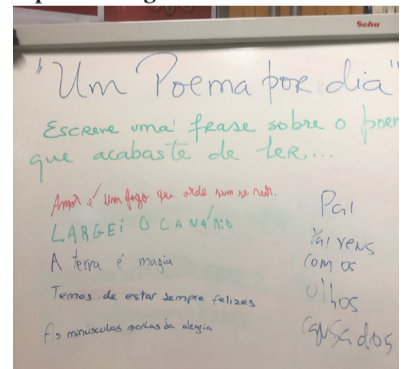 Scha
"Um Poema por dia"
Escreve uma frase sobre o poem
que acabaste de ler...
Amor é um fogo que arde sem se ver.
LARGEI O CANÁRIO
A terra é magia
Temos de estar sempre felizes
As minúsculas portas da alegria
Pai
Pai vens
com os
olhos
cansados